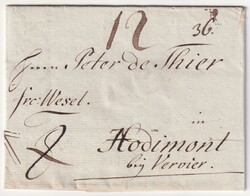 12
36
Herrn Peter de Thier
frc: Wesel.
in
Hodimont
bey Vervier.